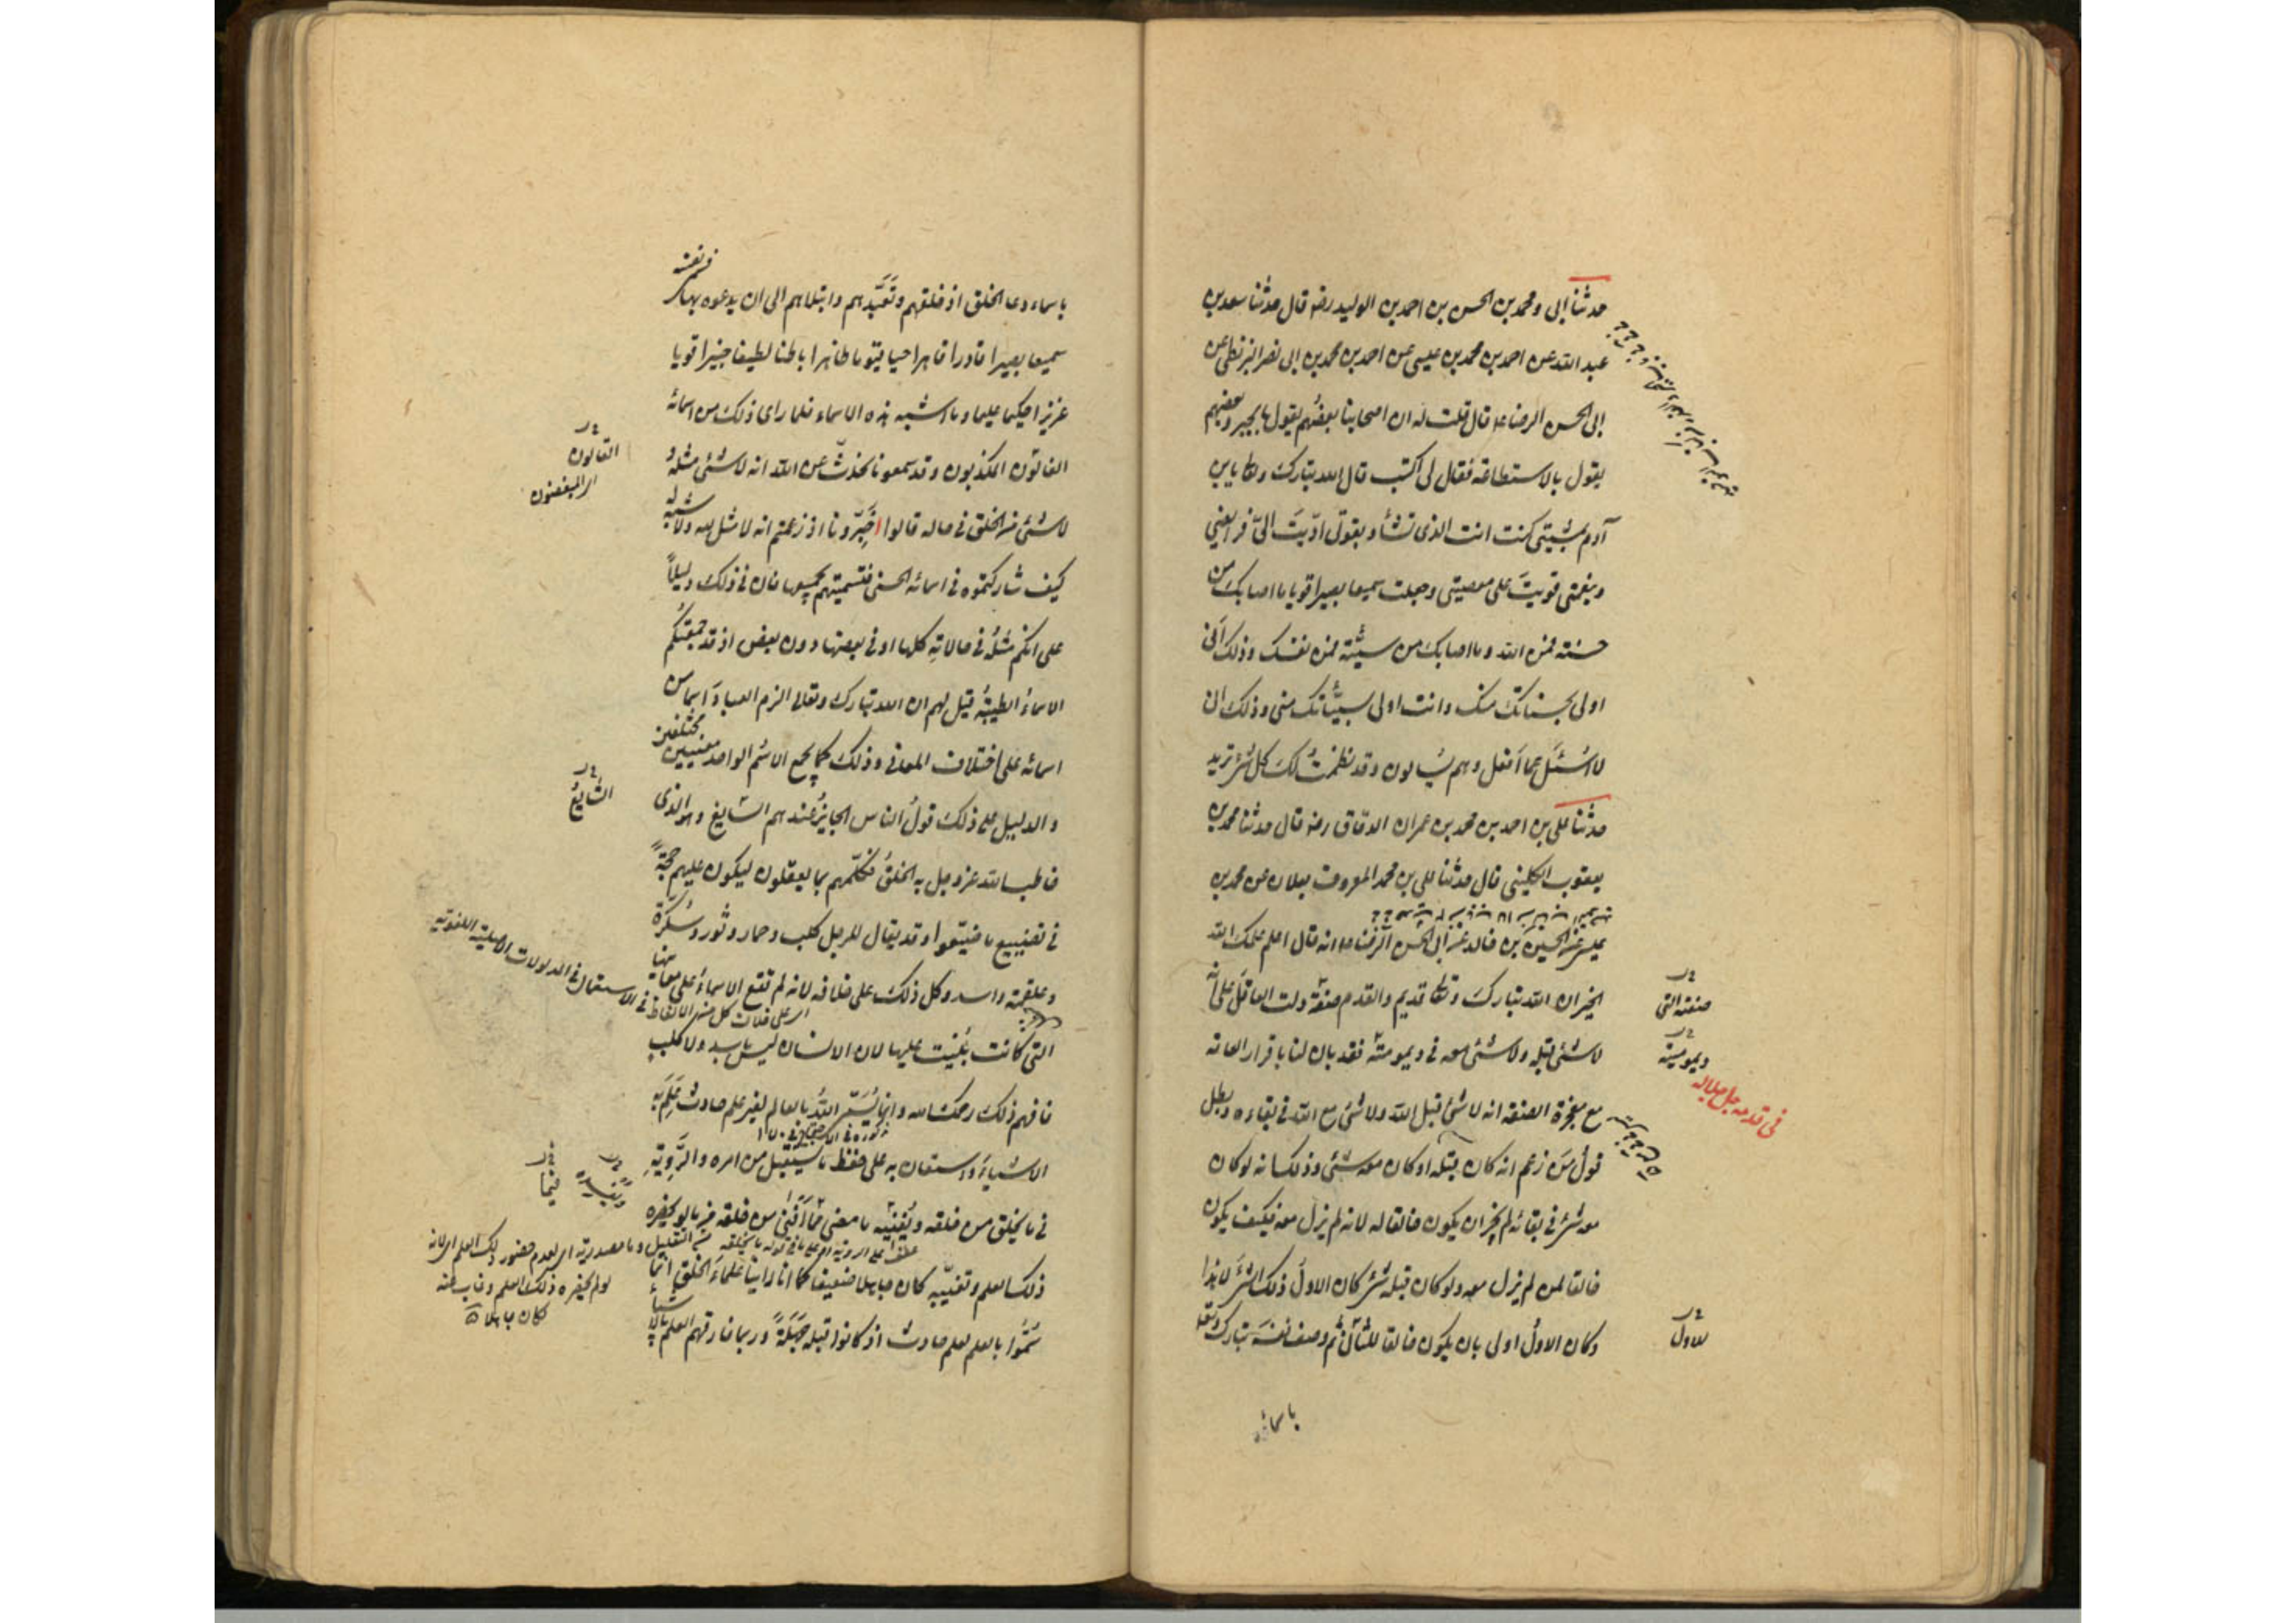 حدثنا ابى ومحمد بن الحسن بن احمد بن الوليد رضه قال حدثنا سعد بن
عبد الله عن احمد بن محمد بن عيسى عن احمد بن محمد بن ابى نصر البزنطى عن
ابى الحسن الرضا ع قال قلت له ان اصحابنا بعضهم يقول بالجبر وبعضهم
يقول بالاستطاعة فقال لى اكتب قال الله تبارك وتعالى يابن
آدم بمشيتى كنت انت الذى تشأ وبقوتى ادّيت الىّ فرايضي
وبنعمتى قويت على معصيتى وجعلت سميعا بصيرا قويا ما اصابك من
حسنة فمن الله وما اصابك من سيئة فمن نفسك وذلك أنى
اولى بحسناتك منك وانت اولى بسيّئاتك منى وذلك انى
لا اُسْئَل عما اَفعل وهم يُسالون وقد نظمتُ لك كل شئ تريد
حدثنا على بن احمد بن محمد بن عمران الدقاق رضه قال حدثنا محمد بن
يعقوب الكلينى قال حدثنا على بن محمد المعروف بعلان عن محمد بن
عيسى عن الحسين بن خالد عن ابى الحسن الرضا ع انه قال اعلم علمك الله
الخير ان الله تبارك وتعالى قديم والقدم صفة دلت العاقل على انه
لا شئ قبله ولا شئ معه فى ديموميته فقد بان لنا باقرار العامة
مع معجزة الصفة انه لا شئ قبل الله ولا شئ مع الله فى بقاءه وبطل
قولُ من زعم انه كان قبله او كان معه شئ وذلك انه لو كان
معه شئ فى بقائه لم يجز ان يكون خالقا له لانه لم يزل معه فكيف يكون
خالقا لمن لم يزل معه ولو كان قبله شئ كان الاول ذلك الشئ لا هذا
وكان الاول اولى بان يكون خالقا للثانى ثم وصف نفسه تبارك وتعالى
باسمائه
صفته التى
ديموميته
فى قدمه جل جلاله
للاول
باسماء دعا الخلق اذ خلقهم وتَعَبَّدهم وابتلاهم الى ان يدعوه بها فسمى نفسه
سميعا بصيرا قادرا قاهرا حيا قيوما ظاهرا باطنا لطيفا خبيرا قويا
عزيزا حكيما عليما وما اشبه هذه الاسماء فلما راى ذلك من اسمائه
الغالون المكذبون وقد سمعونا نحدّث عن الله انه لا شئ مثله و
لا شئ من الخلق فى حاله قالوا اَخبِرّونا اذ زعمتم انه لا مثل لله ولا شبه له
كيف شاركتموه فى اسمائه الحسنى فتسميتهم بجميعها فان فى ذلك دليلاً
على انكم مثلُه فى حالاتِهِ كلها او فى بعضها دون بعض اذ قد جمعتكم
الاسماءُ الطيبةُ قيل لهم ان الله تبارك وتعالى الزم العبادَ اسماء من
اسمائه على اختلاف المعانى وذلك كما يجمع الاسمُ الواحد معنيين مختلفين
والدليل على ذلك قولُ الناس الجايزُ عندهم السايغ وهو الذى
خاطب الله عز وجل به الخلقَ فكلّمهم بما يعقلون ليكون عليهم حجةً
فى تضييع ما ضيّعوا وقد يقال للرجل كلب وحمار وثور وسُكّرة
وعلقمة واسد وكل ذلك على خلافه لانه لم تقع الاسماءُ على معانيها
التى كانت بُنِيَت عليها لان الانسان ليس باسد ولا كلب
فافهم ذلك رحمك الله وانما نُسَمّى اللهَ بالعالم لغير علم حادث عَلِمَ به
الاشياءَ واستعان به على حفظ ما يُستقبل من امره والرَّوِيّةِ
فى ما يخلق من خلقه ويُفنيه ما مضى مما اَفنى من خلقه مما لو لم يحضره
ذلك العلم وتغيّبه كان جاهلا ضعيفا كما انا راينا علماءَ الخلق انما
سُمُّوا بالعلم لعلم حادث اذ كانوا قبله جَهَلةً وربما فارقهم العلم بالاشياء
القالون
اى المبغضون
الشايعُ
اى على خلاف كل من هذا الالفاظ فى الاستعمال فى المدلولات الاصلية اللغوية
لو لم يحضره ذلك العلم وغاب عنه
كان جاهلا